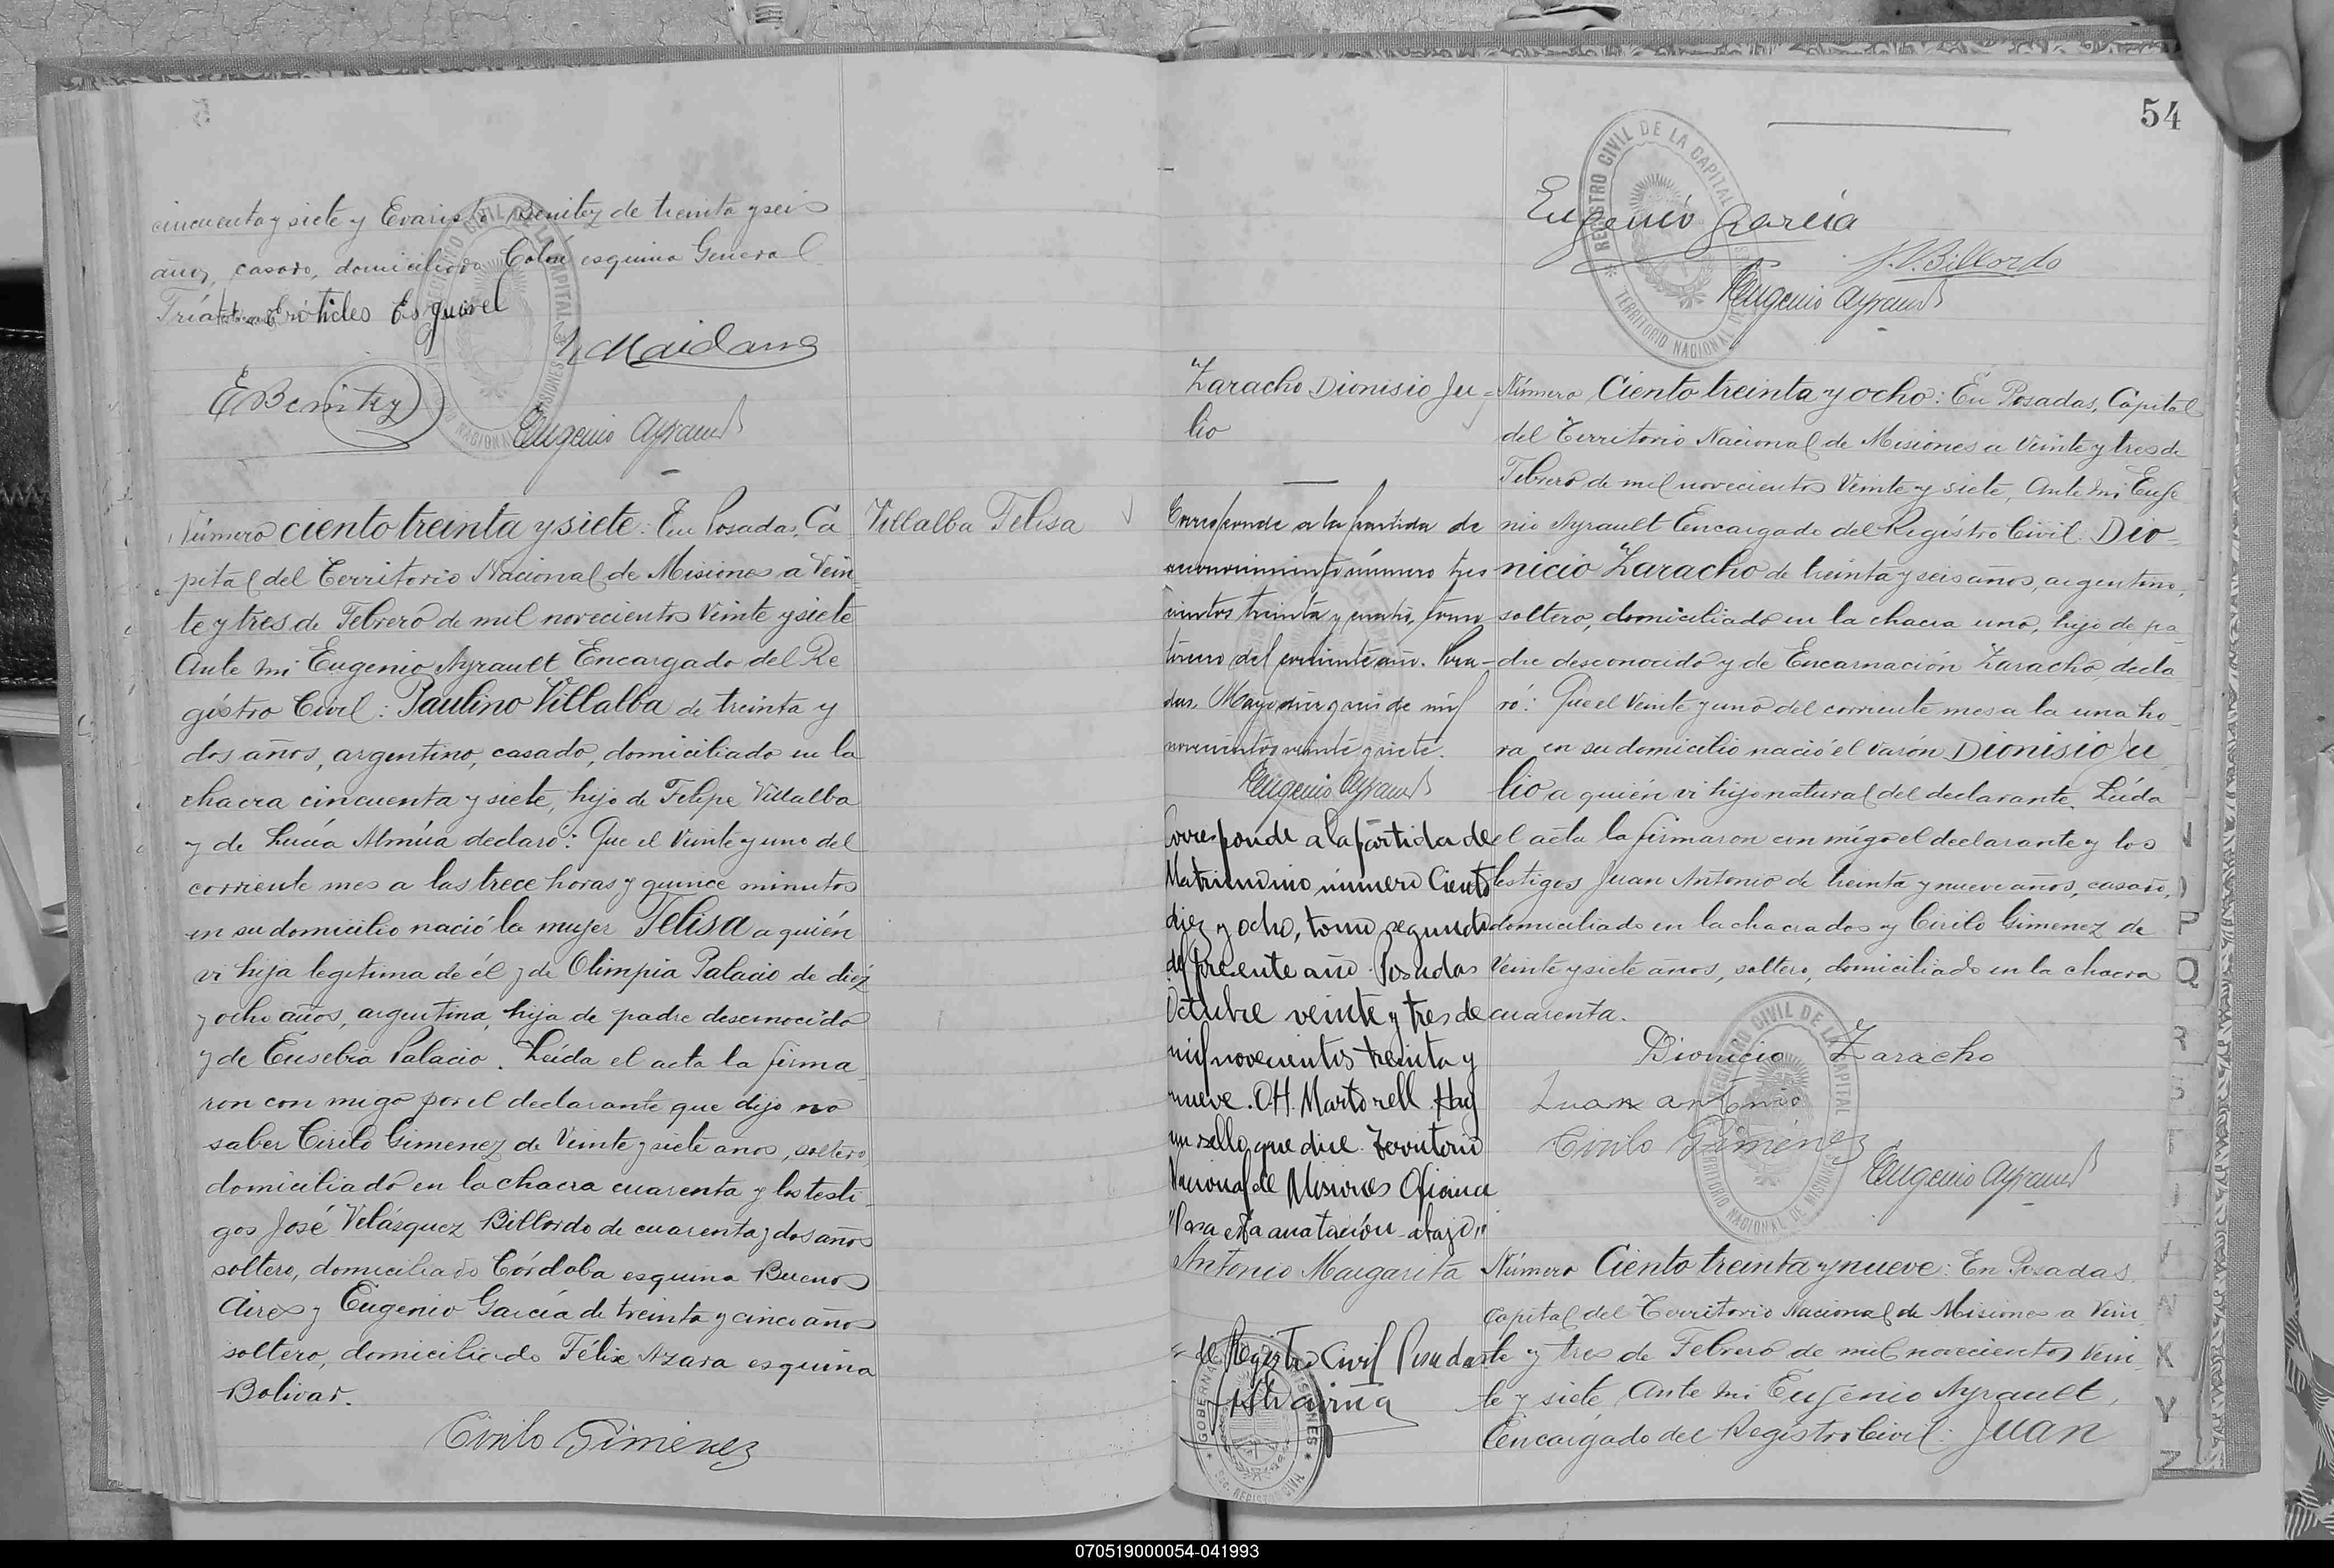 cincuenta y siete y Evaristo Benitez de treinta y seis
años, casado, domiciliado Colón esquina General
Frías Esquivel
Maidana
E Benitez
Eugenio Ayrault
Villalba Felisa
Número ciento treinta y siete: En Posadas, Ca
pital del Territorio Nacional de Misiones a Vein
te y tres de Febrero de mil novecientos Veinte y siete
Ante mi Eugenio Ayrault Encargado del Re
gistro Civil: Paulino Villalba de treinta y
dos años, argentino, casado, domiciliado en la
chacra cincuenta y siete, hijo de Felipe Villalba
y de Lucía Almúa declaró: Que el Veinte y uno del
corriente mes a las trece horas y quince minutos
en su domicilio nació la mujer Felisa a quién
vi hija legitima de él y de Olimpia Palacio de diez
y ocho años, argentina, hija de padre desconocido
y de Eusebia Palacio. Leída el acta la firma
ron con migo por el declarante que dijo no
saber Cirilo Gimenez de Veinte y siete años, soltero,
domiciliado en la chacra cuarenta y los testi-
gos José Velázquez Billordo de cuarenta y dos años
soltero, domiciliado Córdoba esquina Buenos
Aires y Eugenio García de treinta y cinco años
soltero, domiciliado Félix Azara esquina
Bolivar.
Cirilo Gimenez
54
REGISTRO CIVIL DE LA CAPITAL
TERRITORIO NACIONAL DE MISIONES
Eugenio García
J. V. Billordo
Eugenio Ayrault
Zaracho Dionisio Ju-
lio
Corresponde a la partida de
reconocimiento número tres
cientos treinta y cuatro, tomo
tercero del corriente año. Posa-
das, Mayo diez y seis de mil
novecientos veinte y siete.
Eugenio Ayrault
Corresponde a la partida de
Matrimonio número Ciento
diez y ocho, tomo segundo
del presente año. Posadas
Octubre veinte y tres de
mil novecientos treinta y
nueve. O.H. Martorell. Hay
un sello que dice Territorio
Nacional de Misiones Oficina
"Pasa esta anotación abajo"
Número Ciento treinta y ocho: En Posadas, Capital
del Territorio Nacional de Misiones a Veinte y tres de
Febrero de mil novecientos Veinte y siete, Ante mi Euge
nio Ayrault Encargado del Registro Civil: Dio-
nicio Zaracho de treinta y seis años, argentino,
soltero, domiciliado en la chacra uno, hijo de pa-
dre desconocido y de Encarnación Zaracho, decla
ró: Que el Veinte y uno del corriente mes a la una ho-
ra en su domicilio nació el varón Dionisio Ju
lio a quién vi hijo natural del declarante. Leída
el acta la firmaron con migo el declarante y los
testigos Juan Antonio de treinta y nueve años, casado,
domiciliado en la chacra dos y Cirilo Gimenez de
Veinte y siete años, soltero, domiciliado en la chacra
cuarenta.
Dionicio Zaracho
Juan antonio
Cirilo Gimenez
Eugenio Ayrault
Antonio Margarita
de Registro Civil Posadas
Número Ciento treinta y nueve: En Posadas,
Capital del Territorio Nacional de Misiones a Vein
te y tres de Febrero de mil novecientos Vein-
te y siete, Ante mi Eugenio Ayrault,
Encargado del Registro Civil: Juan
P
Q
R
S
T
X
Y
Z
070519000054-041993